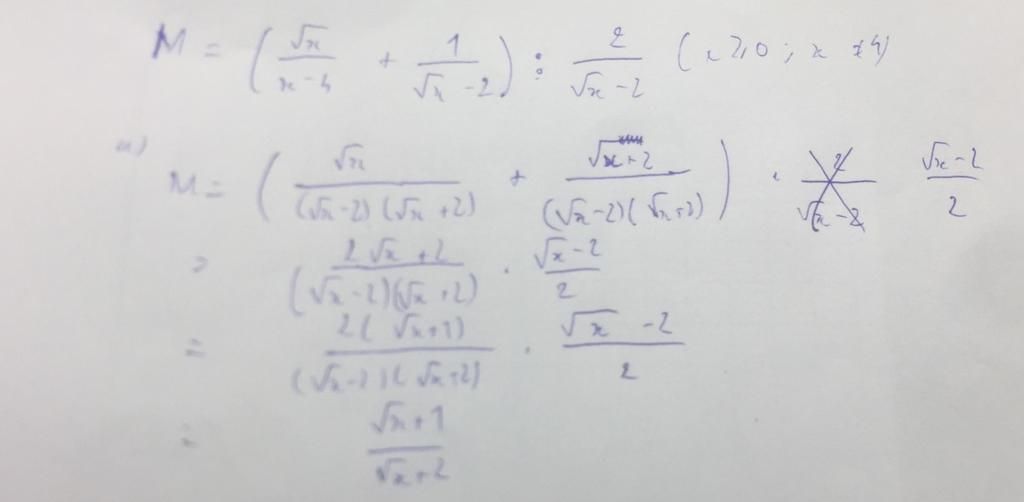 M = (√x/(x-4) + 1/(√x-2)) : 2/(√x-2) (x ≥ 0; x ≠ 4)
a) M = (√x/((√x-2)(√x+2)) + (√x+2)/((√x-2)(√x+2))) · (√x-2)/2
= (2√x+2)/((√x-2)(√x+2)) · (√x-2)/2
= 2(√x+1)/((√x-2)(√x+2)) · (√x-2)/2
= (√x+1)/(√x+2)